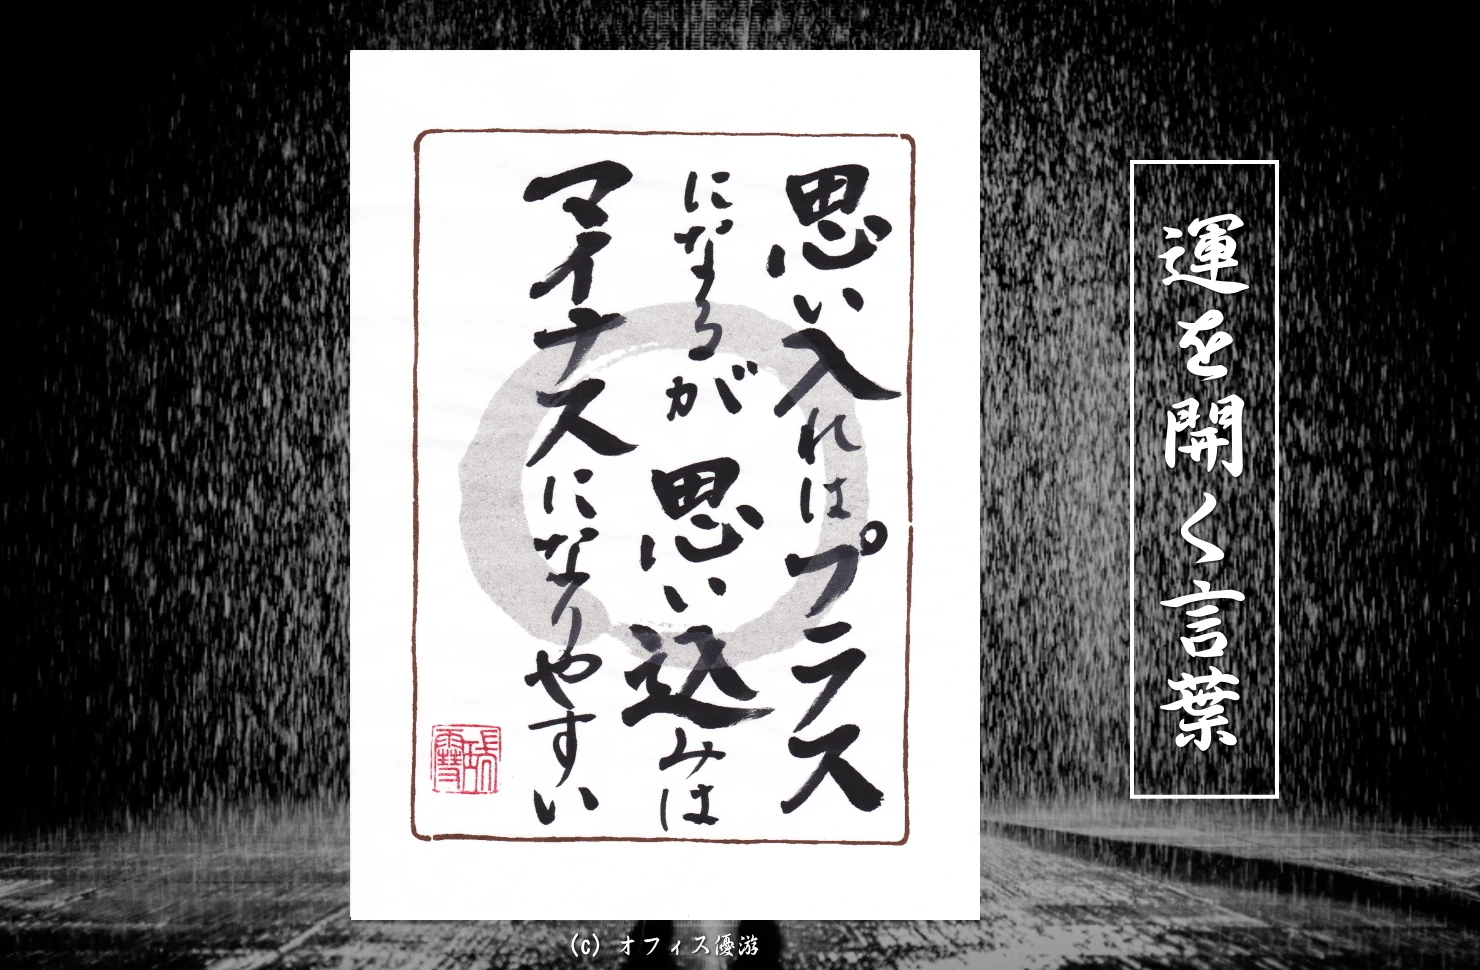 運を開く言葉
思い入れはプラス
になるが思い込みは
マイナスになりやすい
(c) オフィス優游